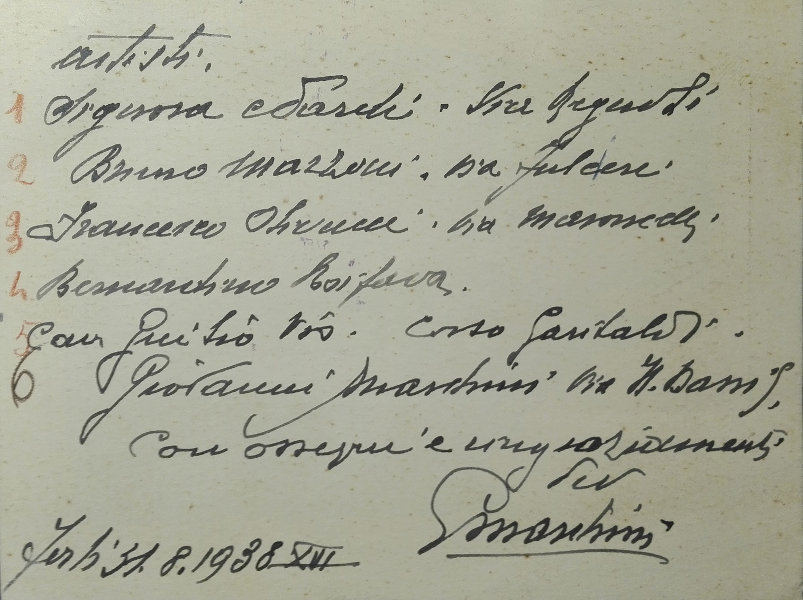 artisti.
1 Signora Starchi. Via Regnoli
2 Bruno Mazzoni. Via Fulcieri
3 Francesco Olivucci. Via Maroncelli
4 Bernardino
5 Cav. Giulio Via. Corso Garibaldi.
6 Giovanni Marchini Via N. Bassi
Con ossequi e ringraziamenti
Suo
GMarchini
Forlì 31.8.1938 XVI